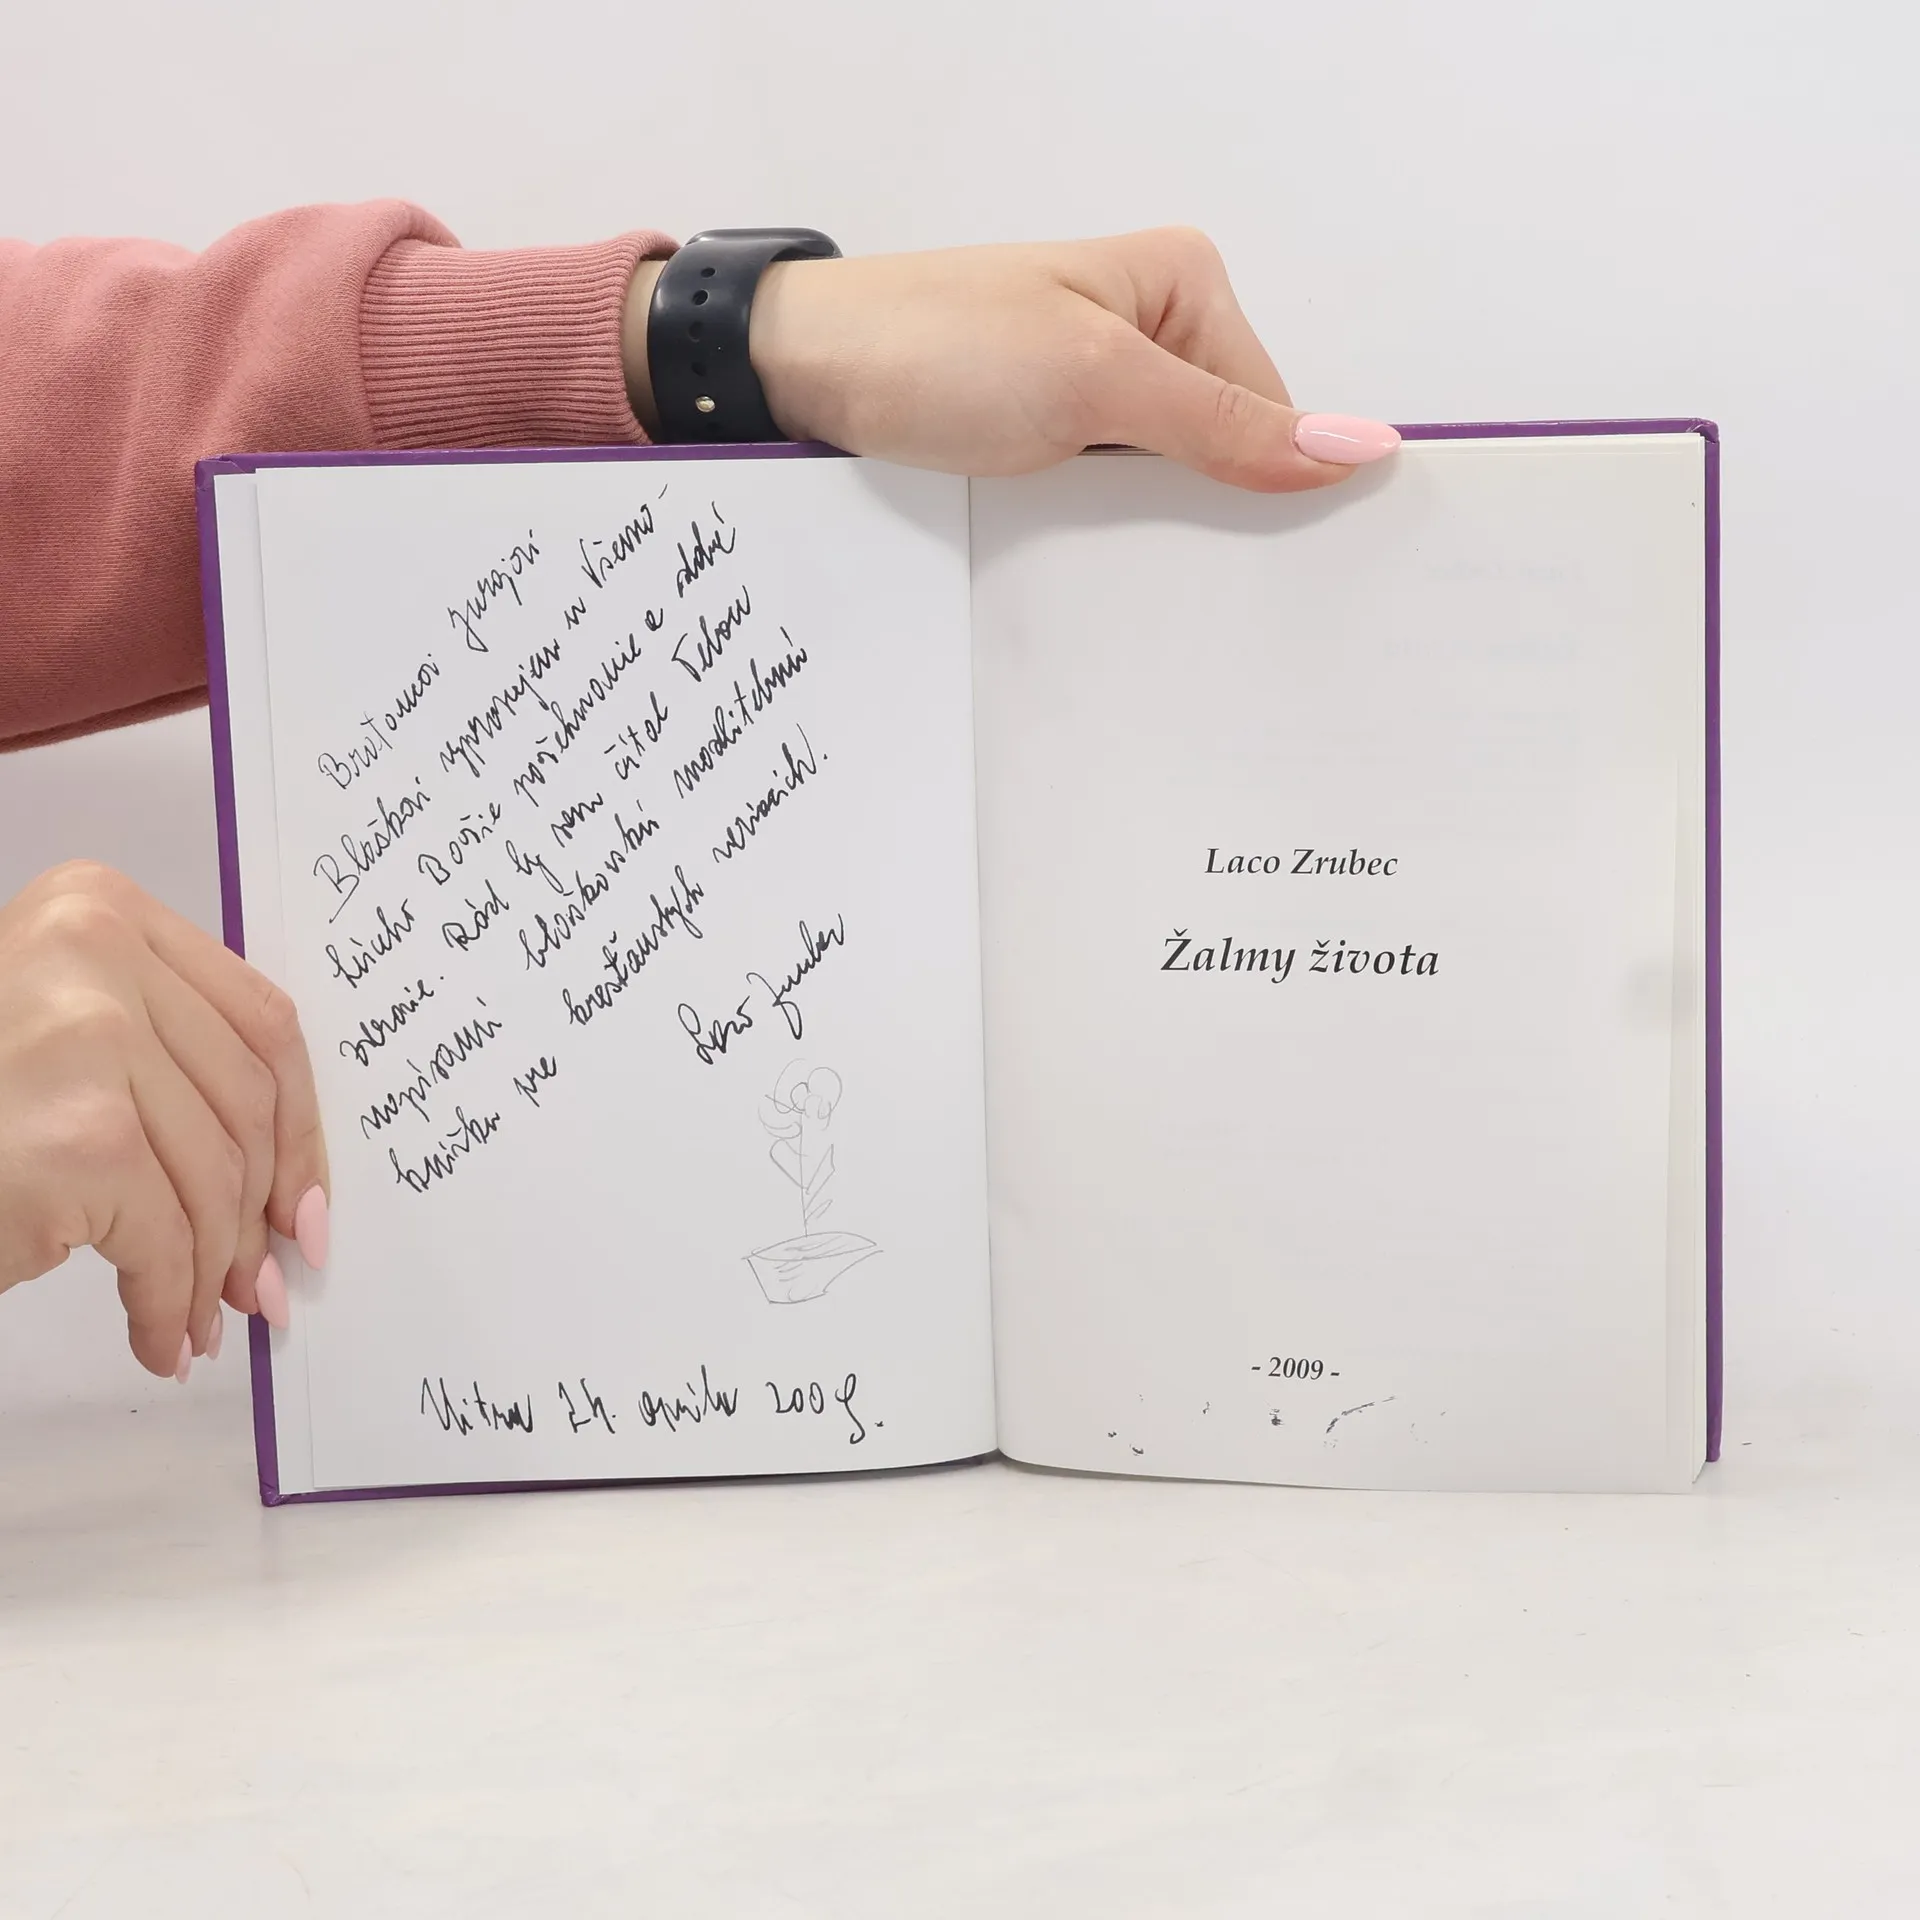 Bratovcovi Jurajovi
Blaškovi vyprosujem u Všemo-
húceho Božie požehnanie a dobré
zdravie. Rád by som čítal Tebou
napísanú blaškovskú modlitebnú
knižku pre kresťanských veriacich.
Laco Zrubec
Nitra 24. apríla 2009.
Laco Zrubec
Žalmy života
- 2009 -